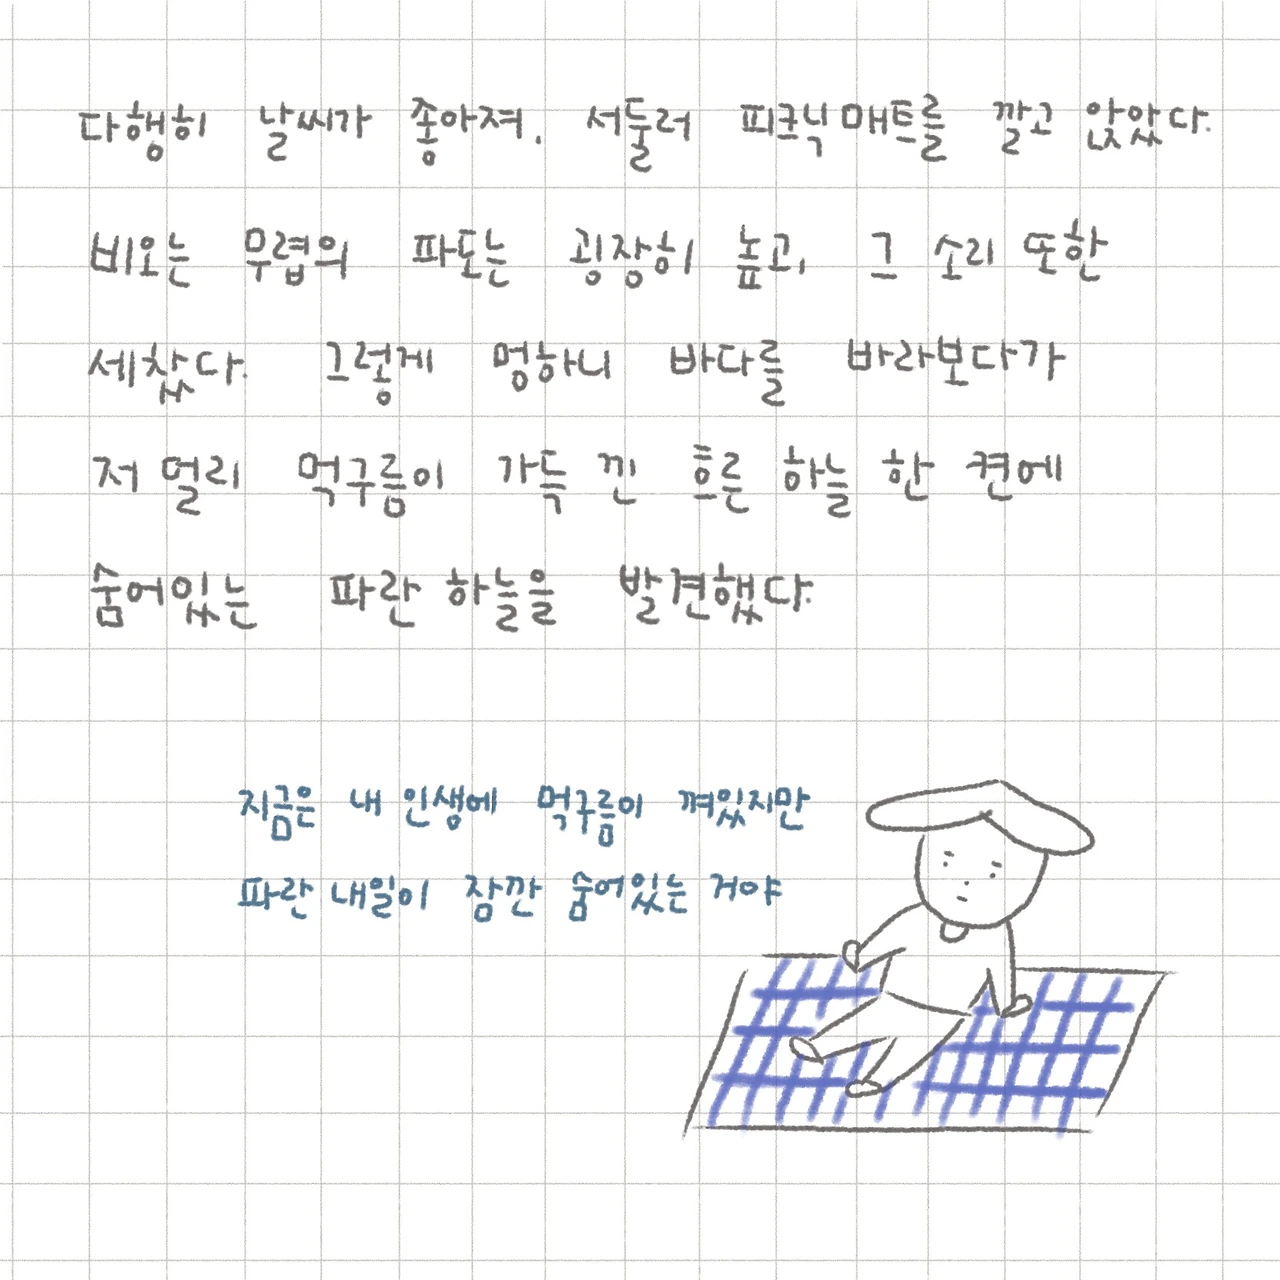 다행히 날씨가 좋아져, 서둘러 피크닉 매트를 깔고 앉았다.
비오는 무렵의 파도는 굉장히 높고, 그 소리 또한
세찼다. 그렇게 멍하니 바다를 바라보다가
저 멀리 먹구름이 가득 낀 흐른 하늘 한 켠에
숨어있는 파란 하늘을 발견했다.
지금은 내 인생에 먹구름이 껴있지만
파란 내일이 잠깐 숨어있는 거야